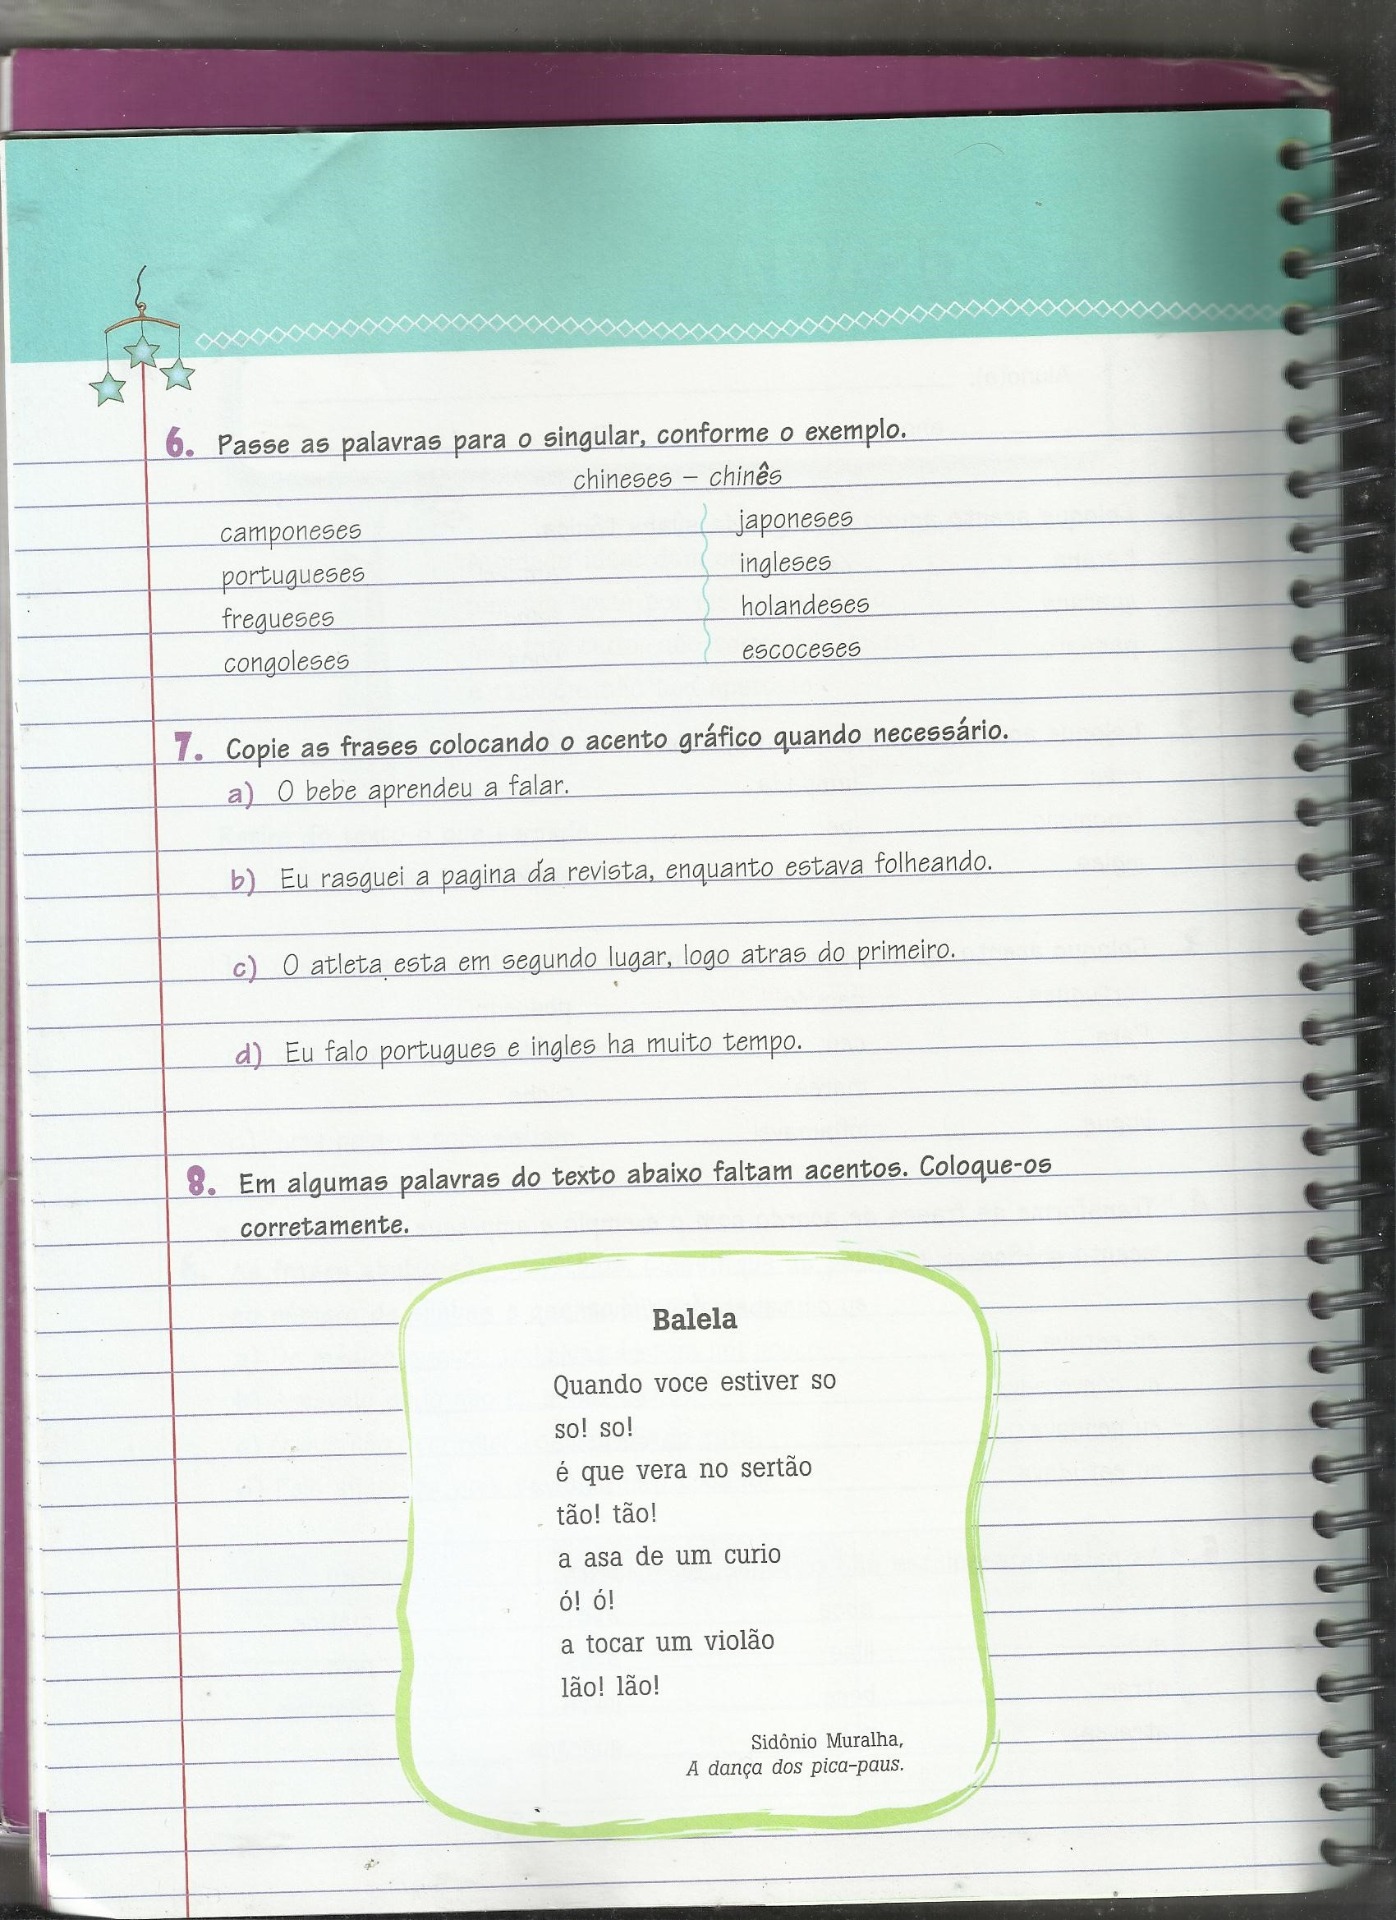 6. Passe as palavras para o singular, conforme o exemplo.
chineses – chinês
camponeses
portugueses
fregueses
congoleses
japoneses
ingleses
holandeses
escoceses
7. Copie as frases colocando o acento gráfico quando necessário.
a) O bebe aprendeu a falar.
b) Eu rasguei a pagina da revista, enquanto estava folheando.
c) O atleta esta em segundo lugar, logo atras do primeiro.
d) Eu falo portugues e ingles ha muito tempo.
8. Em algumas palavras do texto abaixo faltam acentos. Coloque-os
corretamente.
Balela
Quando voce estiver so
so! so!
é que vera no sertão
tão! tão!
a asa de um curio
ó! ó!
a tocar um violão
lão! lão!
Sidônio Muralha,
A dança dos pica-paus.